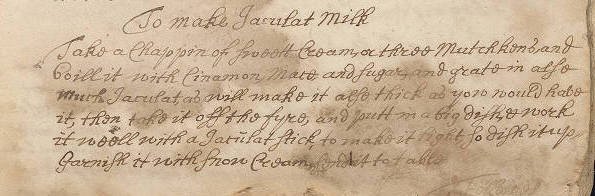 To make Jaculat Milk
Take a Chappin of sweett Cream, or three Mutchkens, and
boill it with Cinamon, Mace and sugar, and grate in alse
much Jaculat, as will make it alse thick as yow would have
it, then take it off the fyre, and putt in a big dish, & work
it weell with a Jaculat stick to make it light, so dish it up,
Garnish it with snow Cream, to table